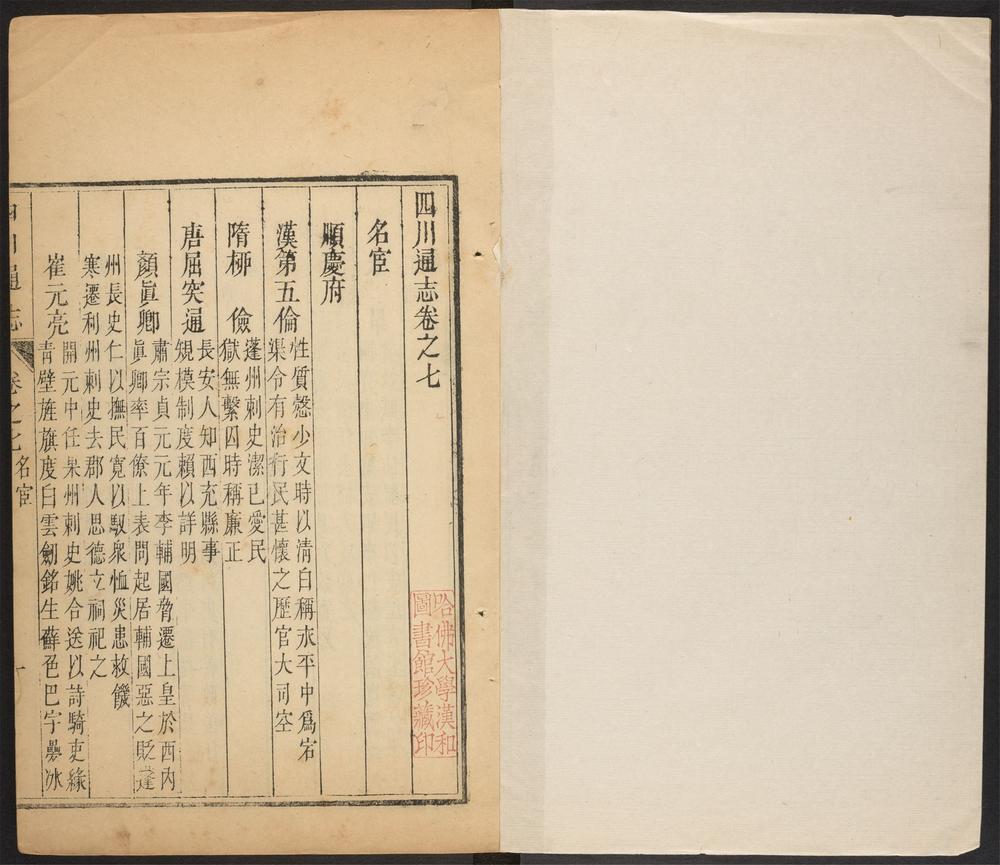 四川通志卷之七
名宦
順慶府
漢第五倫
性質慤少文時以清白稱永平中爲宕
渠令有治行民甚懷之歷官大司空
隋柳 儉
蓬州刺史潔已愛民
獄無繫囚時稱廉正
唐屈突通
長安人知西充縣事
規模制度賴以詳明
顏眞卿
肅宗貞元元年李輔國脅遷上皇於西內
眞卿率百僚上表問起居輔國惡之貶逢
州長史仁以撫民寬以馭衆恤災患救饑
寒遷利州刺史去郡人思德立祠祀之
崔元亮
開元中任果州刺史姚合送以詩騎吏緣
青壁旌旗度白雲劒銘生蘚色巴字疊冰
四川通志
卷之七
名宦
一
哈佛大學漢和
圖書館珍藏印